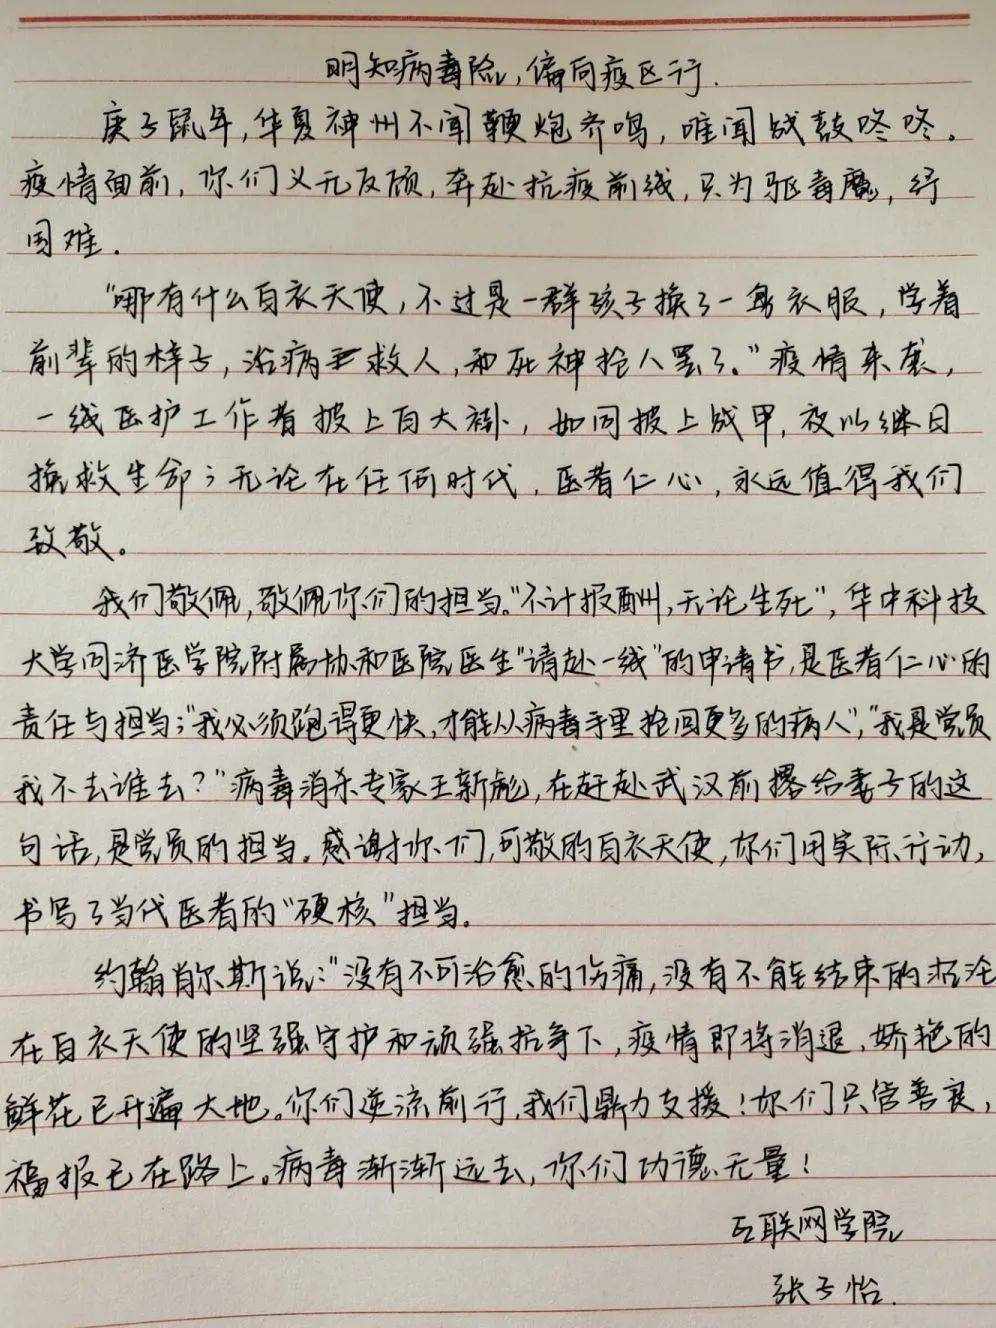 明知病毒险,偏向疫区行.
庚子鼠年,华夏神州不闻鞭炮齐鸣,唯闻战鼓咚咚。
疫情面前,你们义无反顾,奔赴抗疫前线,只为驱毒魔,纾
国难.
"哪有什么白衣天使,不过是一群孩子换了一身衣服,学着
前辈的样子,治病救人,和死神抢人罢了。"疫情来袭,
一线医护工作者披上白大褂,如同披上战甲,夜以继日
挽救生命;无论在任何时代,医者仁心,永远值得我们
致敬。
我们敬佩,敬佩你们的担当。"不计报酬,无论生死",华中科技
大学同济医学院附属协和医院医生"请赴一线"的申请书,是医者仁心的
责任与担当;"我必须跑得更快,才能从病毒手里抢回更多的病人","我是党员
我不去谁去?"病毒消杀专家王新彪,在赶赴武汉前撂给妻子的这
句话,是党员的担当。感谢你们,可敬的白衣天使,你们用实际行动,
书写了当代医者的"硬核"担当。
约翰肖尔斯说:"没有不可治愈的伤痛,没有不能结束的沉沦
在白衣天使的坚强守护和顽强抗争下,疫情即将消退,娇艳的
鲜花已开遍大地。你们逆流前行,我们鼎力支援!你们只管善良,
福报已在路上。病毒渐渐远去,你们功德无量!
互联网学院
张子怡.